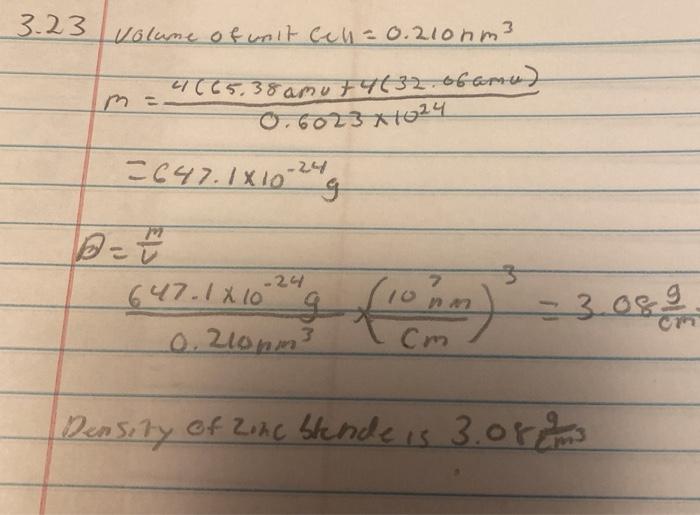 3.23 Volume of unit Cell = 0.210nm³
m = 4(65.38amu + 4(32.06amu) / 0.6023 x 10²⁴
= 647.1 x 10⁻²⁴ g
D = m/V
647.1 x 10⁻²⁴ g / 0.210nm³ x (10⁷ nm / Cm)³ = 3.08 g/cm³
Density of Zinc blende is 3.08 g/cm³